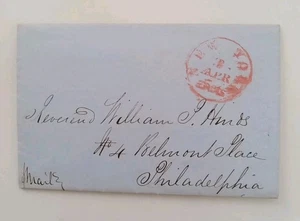 NEW YORK
2
APR
Reverend William P. Hinds
No 4 Belmont Place
Philadelphia